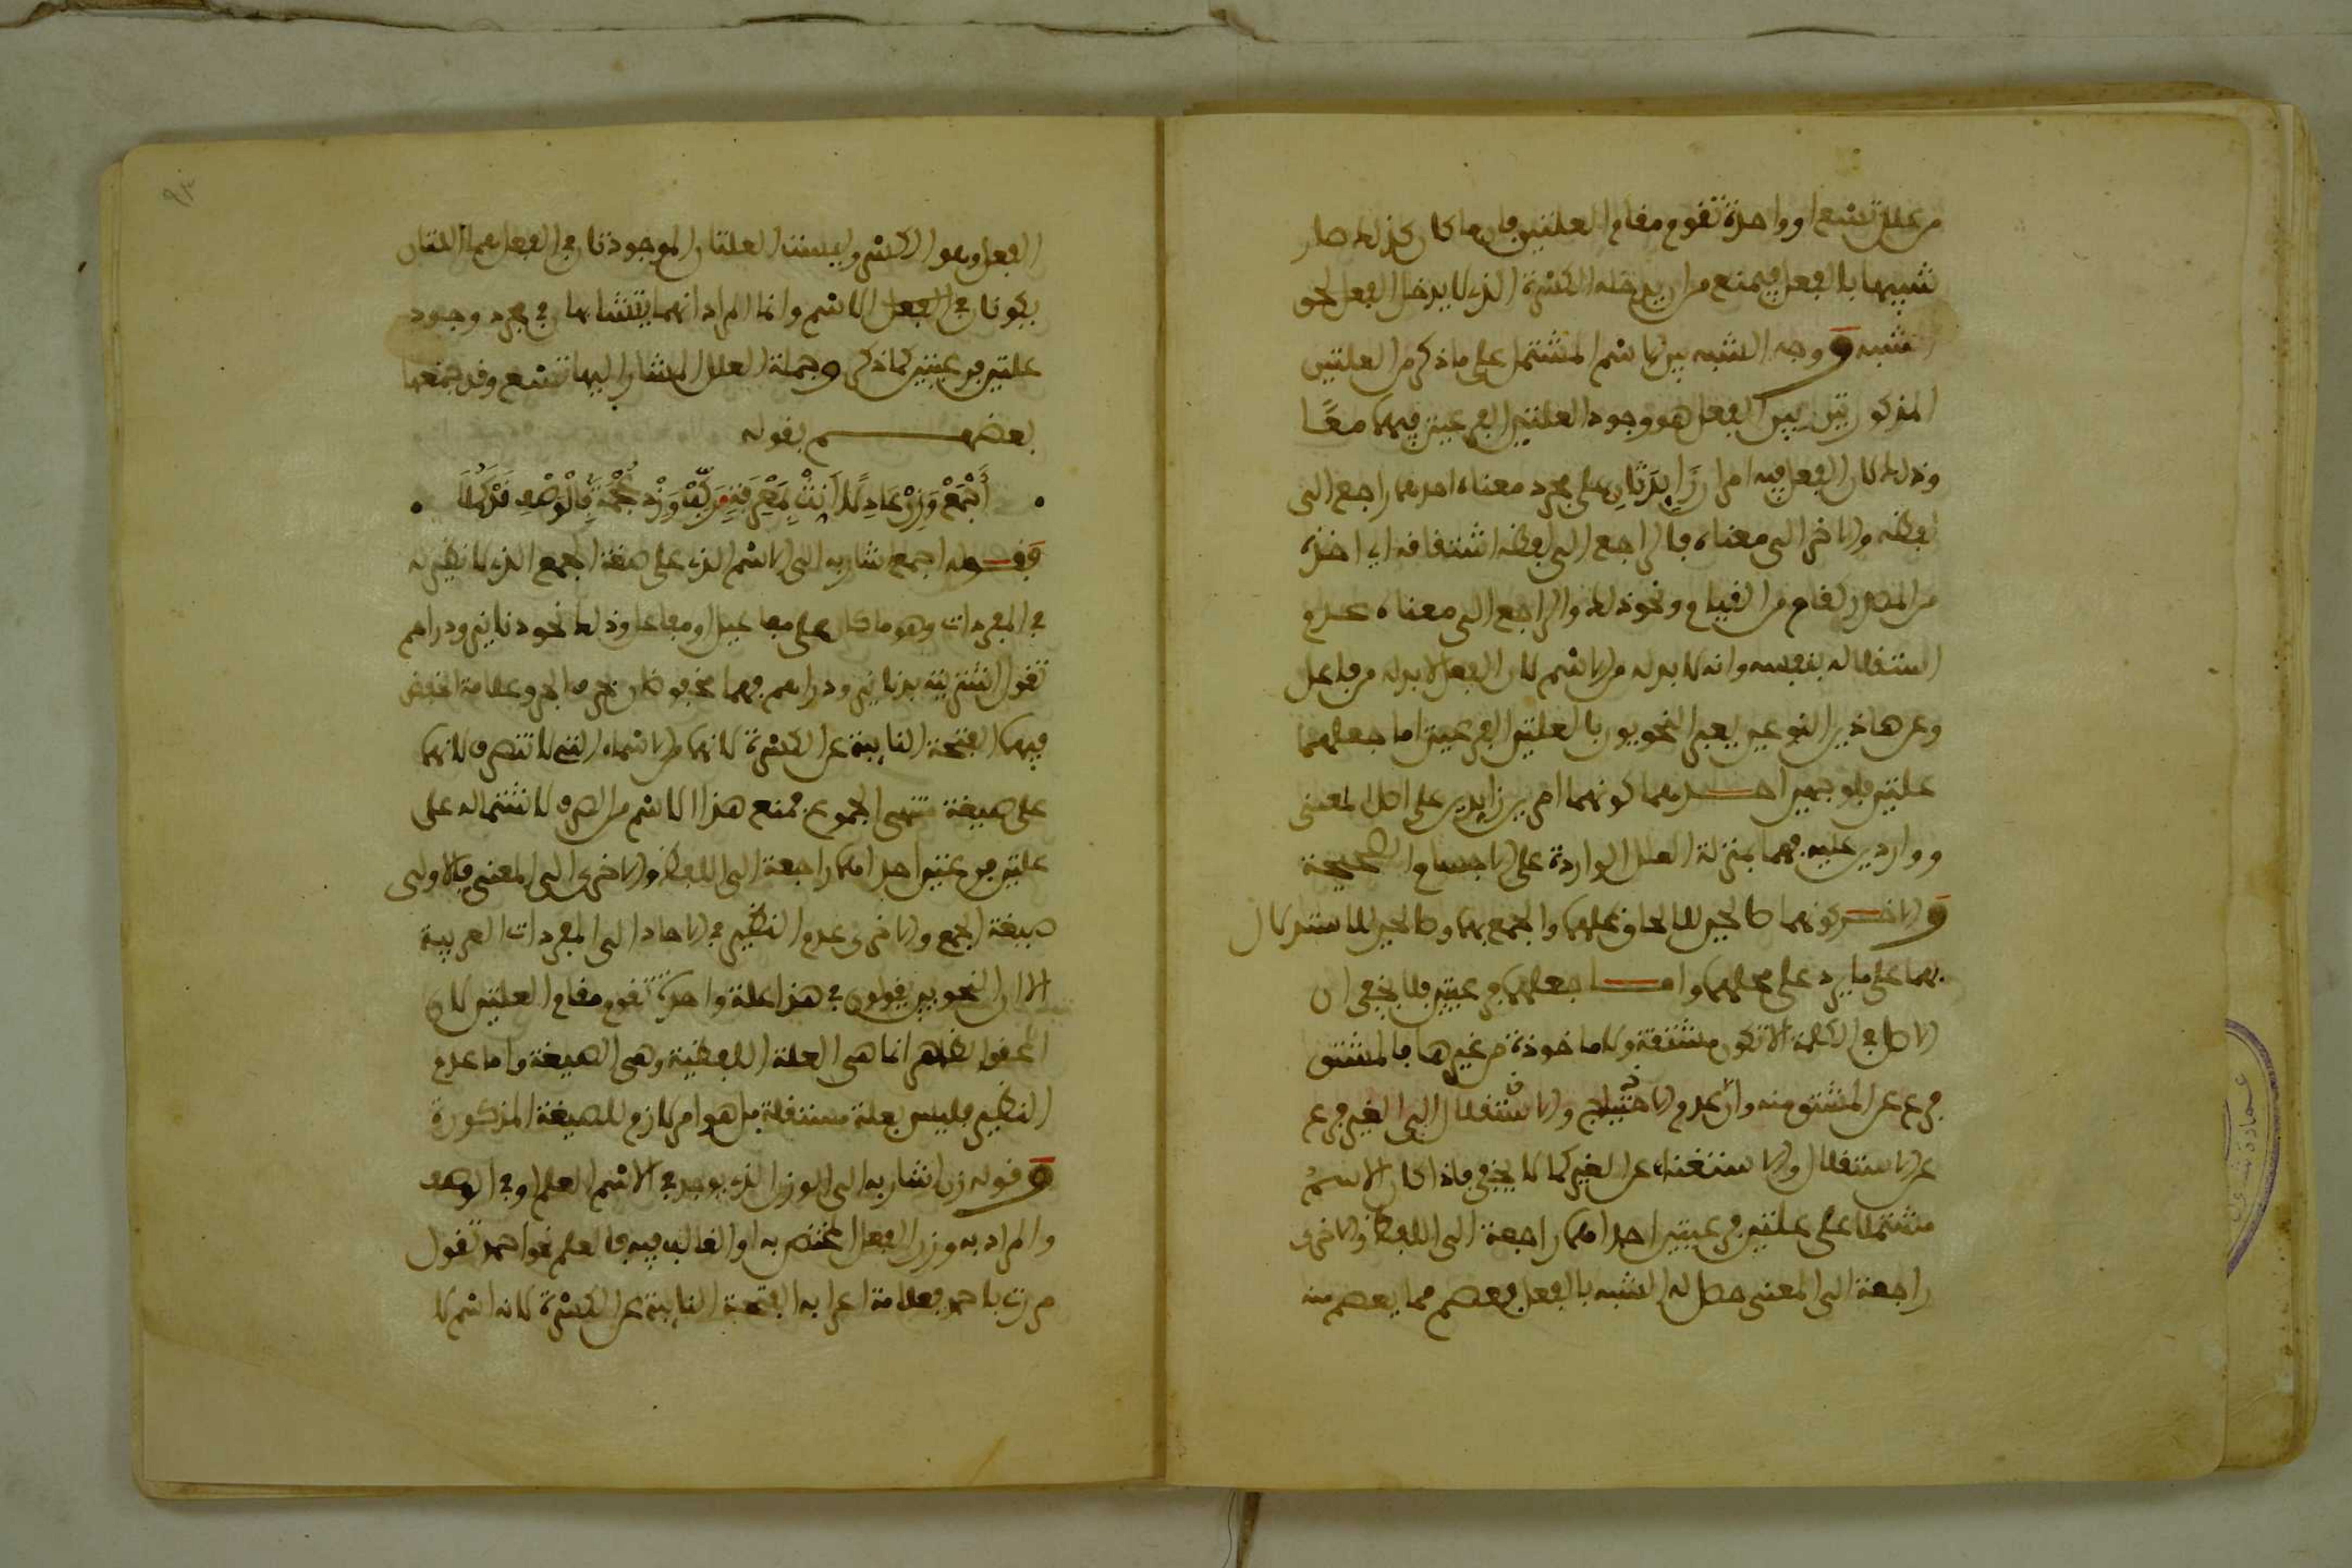 من علل تسع او واحدة تقوم مقام العلتين فانها كان كذلك صار
شبيها بالفعل فيمنع من ان يدخله الكسرة الذي لا يدخل الفعل لحق
الشبه ووجه الشبه بين الاسم المشتمل على ما ذكر من العلتين
المذكورتين وبين الفعل هو وجود العلتين الفرعيتين فيهما معًا
وذلك لان الفعل فيه امران زايدتان على مجرد معناه احدهما راجع الى
لفظه والاخر الى معناه فالراجع الى لفظه اشتقاقه اي اخذه
من المصدر كقام من القيام ونحو ذلك والراجع الى معناه عدم
استقلاله بنفسه وانه لا بد له من الاسم لان الفعل لا بد له من فاعل
وعن هاذين النوعين يعبر النحويون بالعلتين الفرعيتين اما جعلهما
علتين فلوجهين احدهما كونهما امرين زايدين على اصل المعنى
وواردين عليه فهما بمنزلة العلل الواردة على الاجسام الصحيحة
والاخر كونهما صالحين للالحاق عليهما والجمع بهما وصالحين للاستدلال
بهما على ما يرد على محلهما واما جعلهما فرعيتين فلا يخفى ان
الاصل في الكلمة الا تكون مشتقة ولا ماخوذة من غيرها فالمشتق
فرع عن المشتق منه وان عدم الاحتياج والاستقلال الى الغير فرع
عن الاستقلال والاستغناء عن الغير كما لا يخفى فاذا كان الاسم
مشتملا على علتين فرعيتين احداهما راجعة الى اللفظ والاخرى
راجعة الى المعنى حصل له الشبه بالفعل فعصم مما يعصم منه
الفعل وهو الكسر وليست العلتان الموجودتان في الفعل هما اللتان
يكونان في الفعل الاسم وانما المراد انهما يتشابهان في مجرد وجود
علتين فرعيتين كما ذكر وجملة العلل المشار اليها تسع وقد جمعها
بعضهم بقوله
اِجْمَعْ وَزِنْ عَادِلًا اَنِّثْ بِمَعْرِفَةٍ رَكِّبْ وَزِدْ عُجْمَةً فَالْوَصْفُ قَدْ كَمُلَا
فقوله اجمع اشار به الى الاسم الذي على صفة الجمع الذي لا نظير له
في المفردات وهو ما كان على مفاعيل او مفاعل وذلك نحو دنانير ودراهم
تقول اشتريته بدنانير ودراهم فهما مخفوضان بحرف الجر وعلامة الخفض
فيهما الفتحة النايبة عن الكسرة لانهما من الاسماء التي لا تنصرف لانهما
على صيغة منتهى الجموع فمنع هذا الاسم من الصرف لاشتماله على
علتين فرعيتين احداهما راجعة الى اللفظ والاخرى الى المعنى فالاولى
صيغة الجمع والاخرى عدم النظير في الاحاد الى المفردات العربية
الا ان النحويين يقولون في هذا علة واحدة تقوم مقام العلتين لان
المحقق الظاهر انما هي العلة اللفظية وهي الصيغة واما عدم
النظير فليس بعلة مستقلة بل هو امر لازم للصيغة المذكورة
وقوله زن اشار به الى الوزن الذي يوجد في الاسم العلم او في الوصف
والمراد به وزن الفعل المختص به او الغالب فيه فالعلم نحو احمد تقول
مررت باحمد فعلامة اعرابه الفتحة النايبة عن الكسرة لانه اسم لا